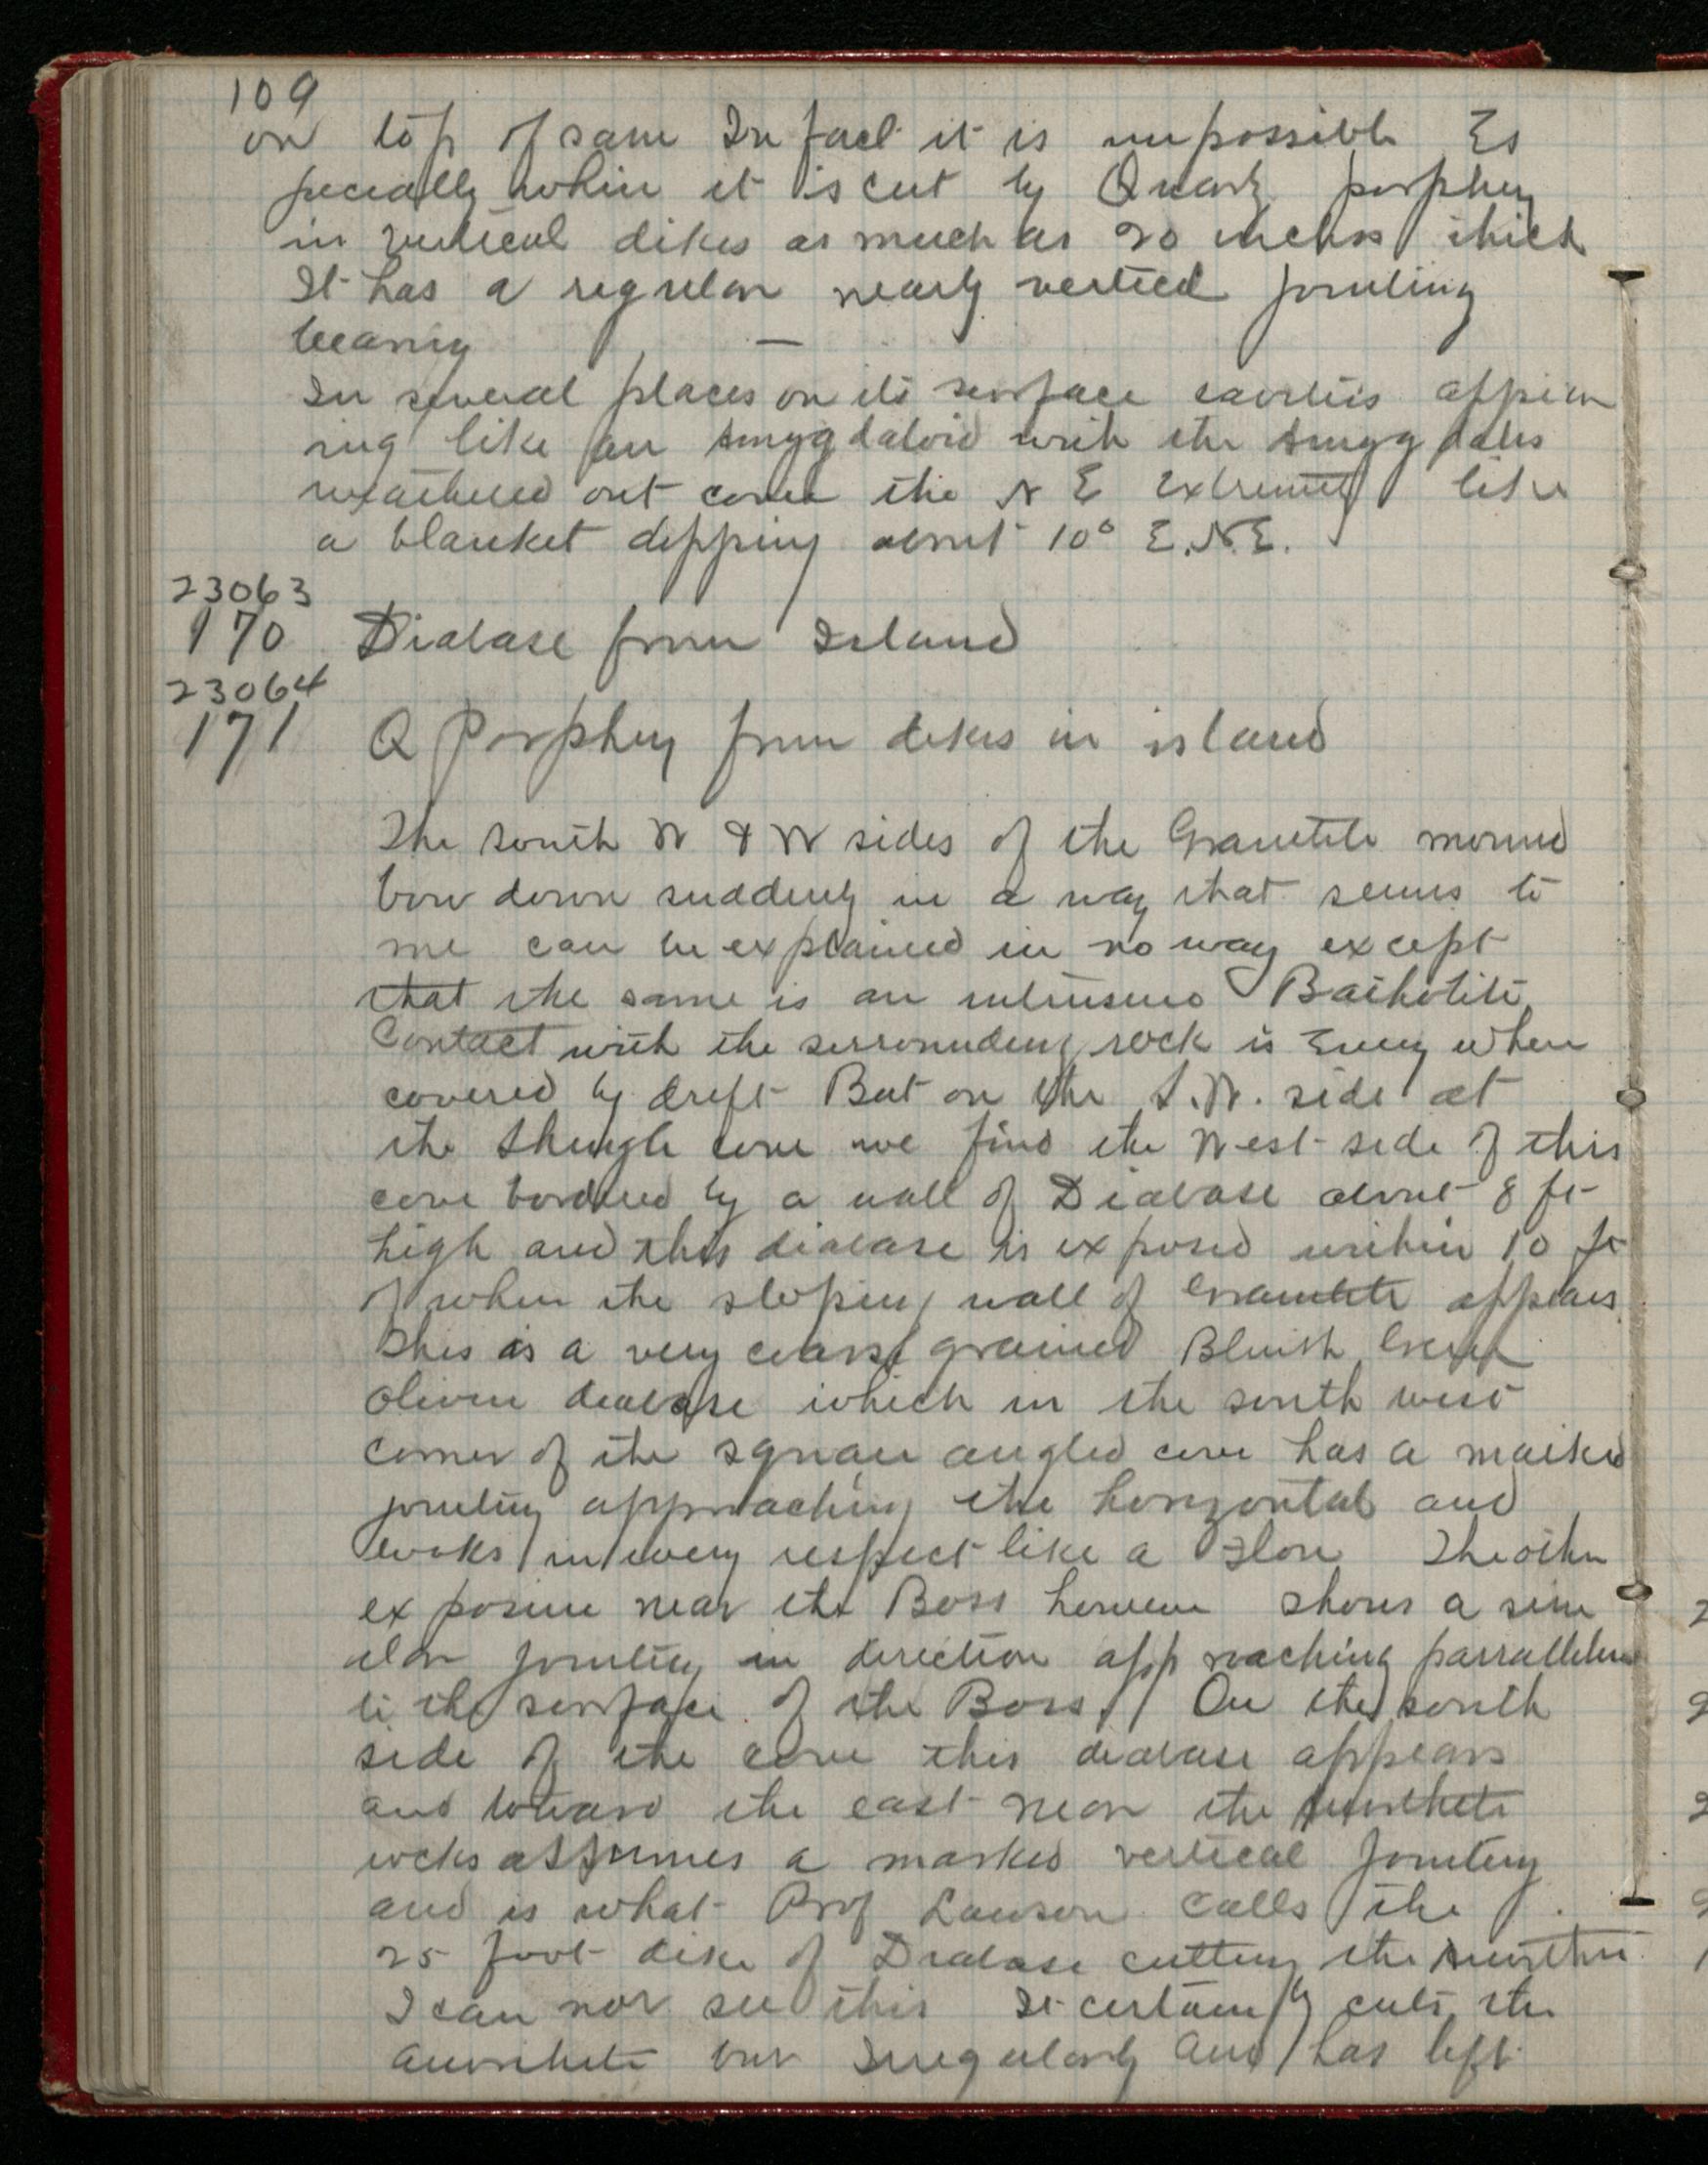 109
on top of same In fact it is impossible Es
pecially when it is cut by Quartz porphry
in vertical dikes as much as 20 inches thick
It has a regular nearly vertical jointing
bearing —
In several places on its surface cavities appear
ing like an Amygdaloid with the Amygdales
weathered out cover the N E Extremity like
a blanket dipping about 10° E.N.E.
23063
170 Diabase from Island
23064
171 Q Porphry from dikes in island
The South W & W sides of the Granitite mound
bow down suddenly in a way that seems to
me can be explained in no way except
that the same is an intrusive Batholite
Contact with the surrounding rock is Every where
covered by drift But on the S.W. side at
the Shingle cove we find the West side of this
cove bordered by a wall of Diabase about 8 ft
high and this diabase is exposed within 10 ft
of where the sloping wall of Granitite appears
This is a very coarse grained Bluish Green
Olivine diabase which in the south west
corner of the square angled cove has a marked
jointing approaching the horizontal and
looks in every respect like a Flow The other
exposure near the Boss however shows a sim
ilar jointing in direction approaching parrallelism
to the surface of the Boss. On the south
side of the cove this diabase appears
and toward the east near the Anorthite
rocks assumes a marked vertical jointing
and is what Prof Lawson calls the
25 foot dike of Diabase cutting the Anorthite
I can not see this It certainly cuts the
anorthite but Irregularly and has left